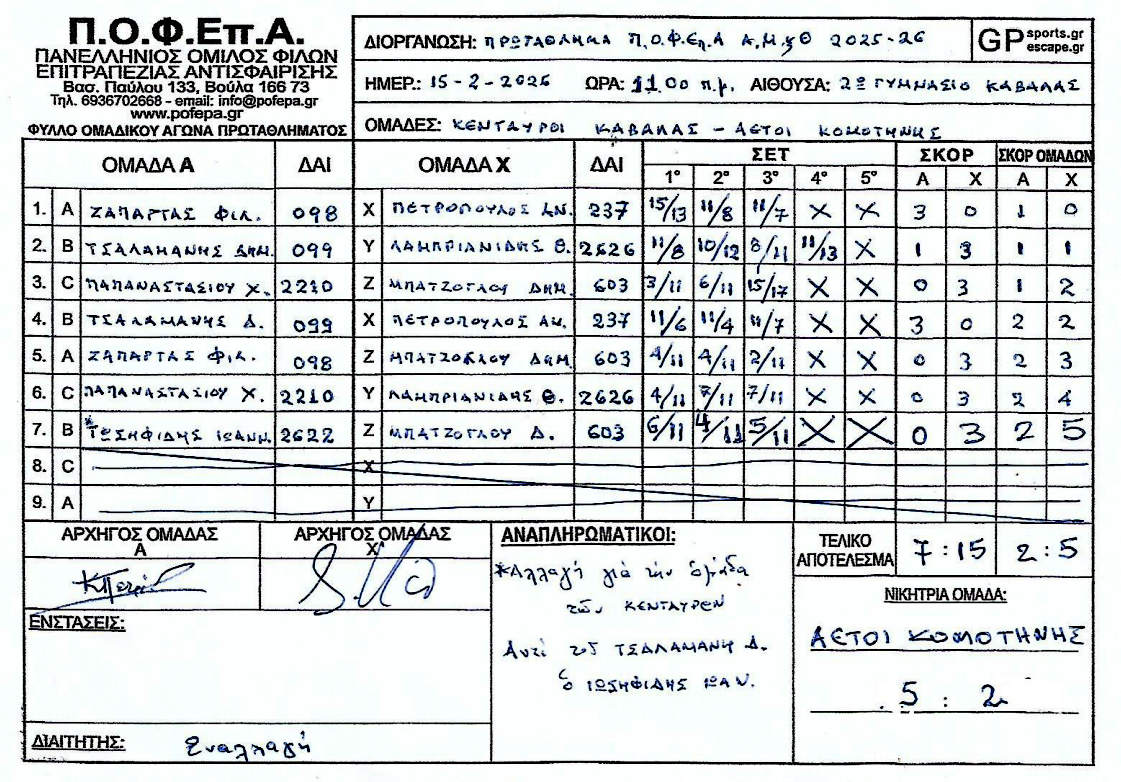 Π.Ο.Φ.Επ.Α.
ΠΑΝΕΛΛΗΝΙΟΣ ΟΜΙΛΟΣ ΦΙΛΩΝ
ΕΠΙΤΡΑΠΕΖΙΑΣ ΑΝΤΙΣΦΑΙΡΙΣΗΣ
Βασ. Παύλου 133, Βούλα 166 73
Τηλ. 6936702668 - email: info@pofepa.gr
www.pofepa.gr
ΦΥΛΛΟ ΟΜΑΔΙΚΟΥ ΑΓΩΝΑ ΠΡΩΤΑΘΛΗΜΑΤΟΣ
ΔΙΟΡΓΑΝΩΣΗ: ΠΡΩΤΑΘΛΗΜΑ Π.Ο.Φ.Επ.Α Α.Μ.χΘ 2025-26
GP sports.gr escape.gr
ΗΜΕΡ.: 15-2-2026 ΩΡΑ: 11.00 π.μ. ΑΙΘΟΥΣΑ: 2º ΓΥΜΝΑΣΙΟ ΚΑΒΑΛΑΣ
ΟΜΑΔΕΣ: ΚΕΝΤΑΥΡΟΙ ΚΑΒΑΛΑΣ - ΑΕΤΟΙ ΚΟΜΟΤΗΝΗΣ
ΟΜΑΔΑ Α ΔΑΙ ΟΜΑΔΑ Χ ΔΑΙ ΣΕΤ ΣΚΟΡ ΣΚΟΡ ΟΜΑΔΩΝ
1º 2º 3º 4º 5º Α Χ Α Χ
1. A ΖΑΠΑΡΤΑΣ ΦΙΛ. 098 X ΠΕΤΡΟΠΟΥΛΟΣ ΑΝ. 237 15/13 11/8 11/7 X X 3 0 1 0
2. B ΤΣΑΛΑΜΑΝΗΣ ΔΗΜ. 099 Y ΛΑΜΠΡΙΑΝΙΔΗΣ Θ. 2626 11/8 10/12 8/11 11/13 X 1 3 1 1
3. C ΠΑΠΑΝΑΣΤΑΣΙΟΥ Χ. 2210 Z ΜΠΑΤΖΟΓΛΟΥ ΔΗΜ. 603 3/11 6/11 15/17 X X 0 3 1 2
4. B ΤΣΑΛΑΜΑΝΗΣ Δ. 099 X ΠΕΤΡΟΠΟΥΛΟΣ ΑΝ. 237 11/6 11/4 11/7 X X 3 0 2 2
5. A ΖΑΠΑΡΤΑΣ ΦΙΛ. 098 Z ΜΠΑΤΖΟΓΛΟΥ ΔΗΜ 603 4/11 4/11 2/11 X X 0 3 2 3
6. C ΠΑΠΑΝΑΣΤΑΣΙΟΥ Χ. 2210 Y ΛΑΜΠΡΙΑΝΙΔΗΣ Θ. 2626 4/11 7/11 7/11 X X 0 3 2 4
7. B *ΙΩΣΗΦΙΔΗΣ ΙΩΑΝΝ. 2622 Z ΜΠΑΤΖΟΓΛΟΥ Δ. 603 6/11 4/11 5/11 X X 0 3 2 5
8. C X
9. A Y
ΑΡΧΗΓΟΣ ΟΜΑΔΑΣ Α ΑΡΧΗΓΟΣ ΟΜΑΔΑΣ Χ ΑΝΑΠΛΗΡΩΜΑΤΙΚΟΙ: ΤΕΛΙΚΟ ΑΠΟΤΕΛΕΣΜΑ 7:15 2:5
*Αλλαγή γιά την ὁμάδα
τῶν ΚΕΝΤΑΥΡΕΝ
Αντί τοῦ ΤΣΑΛΑΜΑΝΗ Δ.
ὁ ΙΩΣΗΦΙΔΗΣ ΙΩΑΝ.
ΝΙΚΗΤΡΙΑ ΟΜΑΔΑ:
ΑΕΤΟΙ ΚΟΜΟΤΗΝΗΣ
5 : 2
ΕΝΣΤΑΣΕΙΣ:
ΔΙΑΙΤΗΤΗΣ: Εναλλαγή